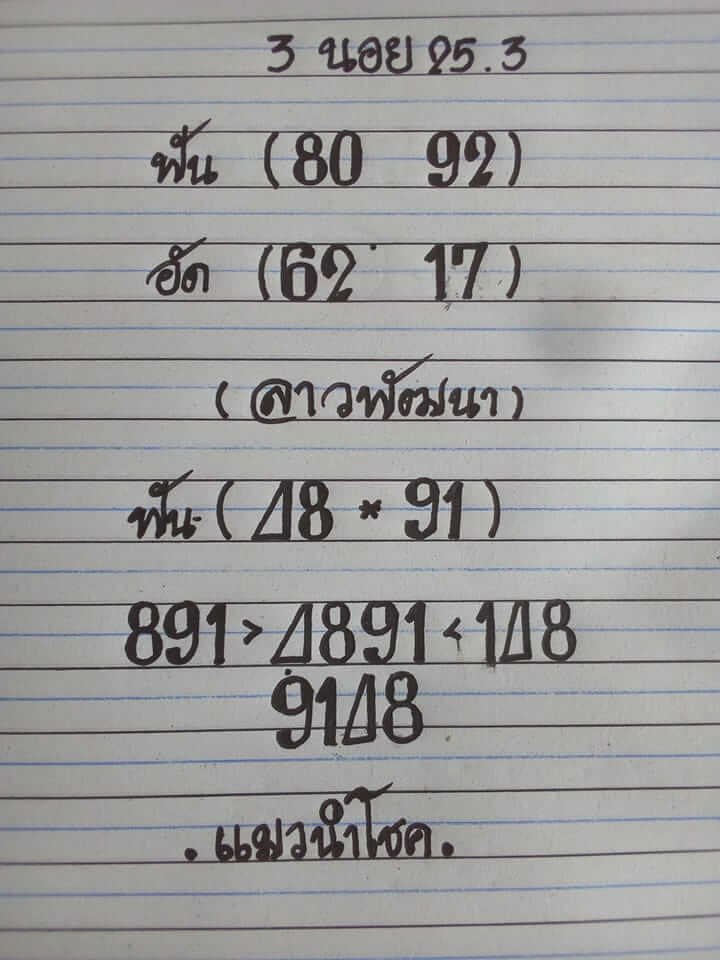 3 นอย 25.3
ฟัน (80 92)
อัด (62 17)
(ลาวพัฒนา)
ฟัน (48 * 91)
891 > 4891 < 148
9148
.แมวนำโชค.